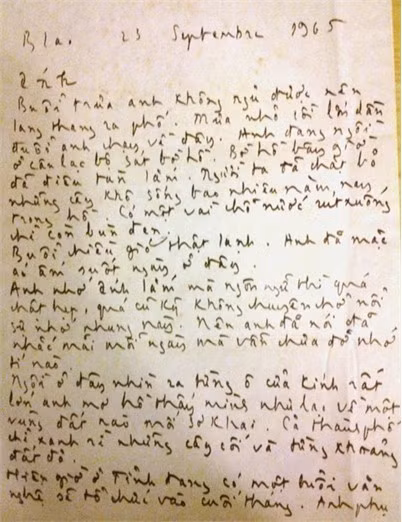 Bla. 23 Septembre 1965
Ánh
Buổi trưa anh không ngủ được nên
lang thang ra phố. Mưa nhỏ rồi lớn dần
đuổi anh chạy về đây. Anh đang ngồi
ở câu lạc bộ sát bờ hồ. Bờ hồ bây giờ
đã điêu tàn lắm. Người ta đã chặt bỏ
những cây khô sống bao nhiêu năm nay
trong hồ. Có một vài chỗ nước rút xuống
chỉ còn bùn đen.
Buổi chiều gió thật lạnh. Anh đã mặc
áo ấm suốt ngày ở đây.
Anh nhớ Ánh lắm mà ngôn ngữ thì quá
chật hẹp, quá cũ kỹ không chuyên chở nổi
sự nhớ nhung này. Nên anh đã nói đã
nhắc mãi mỗi ngày mà vẫn chưa đỡ nhớ
tí nào
Ngồi ở đây nhìn ra từng ô cửa kính rất
lớn anh mơ hồ thấy mình như lạc về một
vùng đất nào mới sơ khai. Cả thành phố
chỉ xanh rì những cây cối và từng khoảng
đất đỏ.
Hiện giờ ở Tỉnh đang có một buổi văn
nghệ sẽ tổ chức vào cuối tháng. Anh phụ